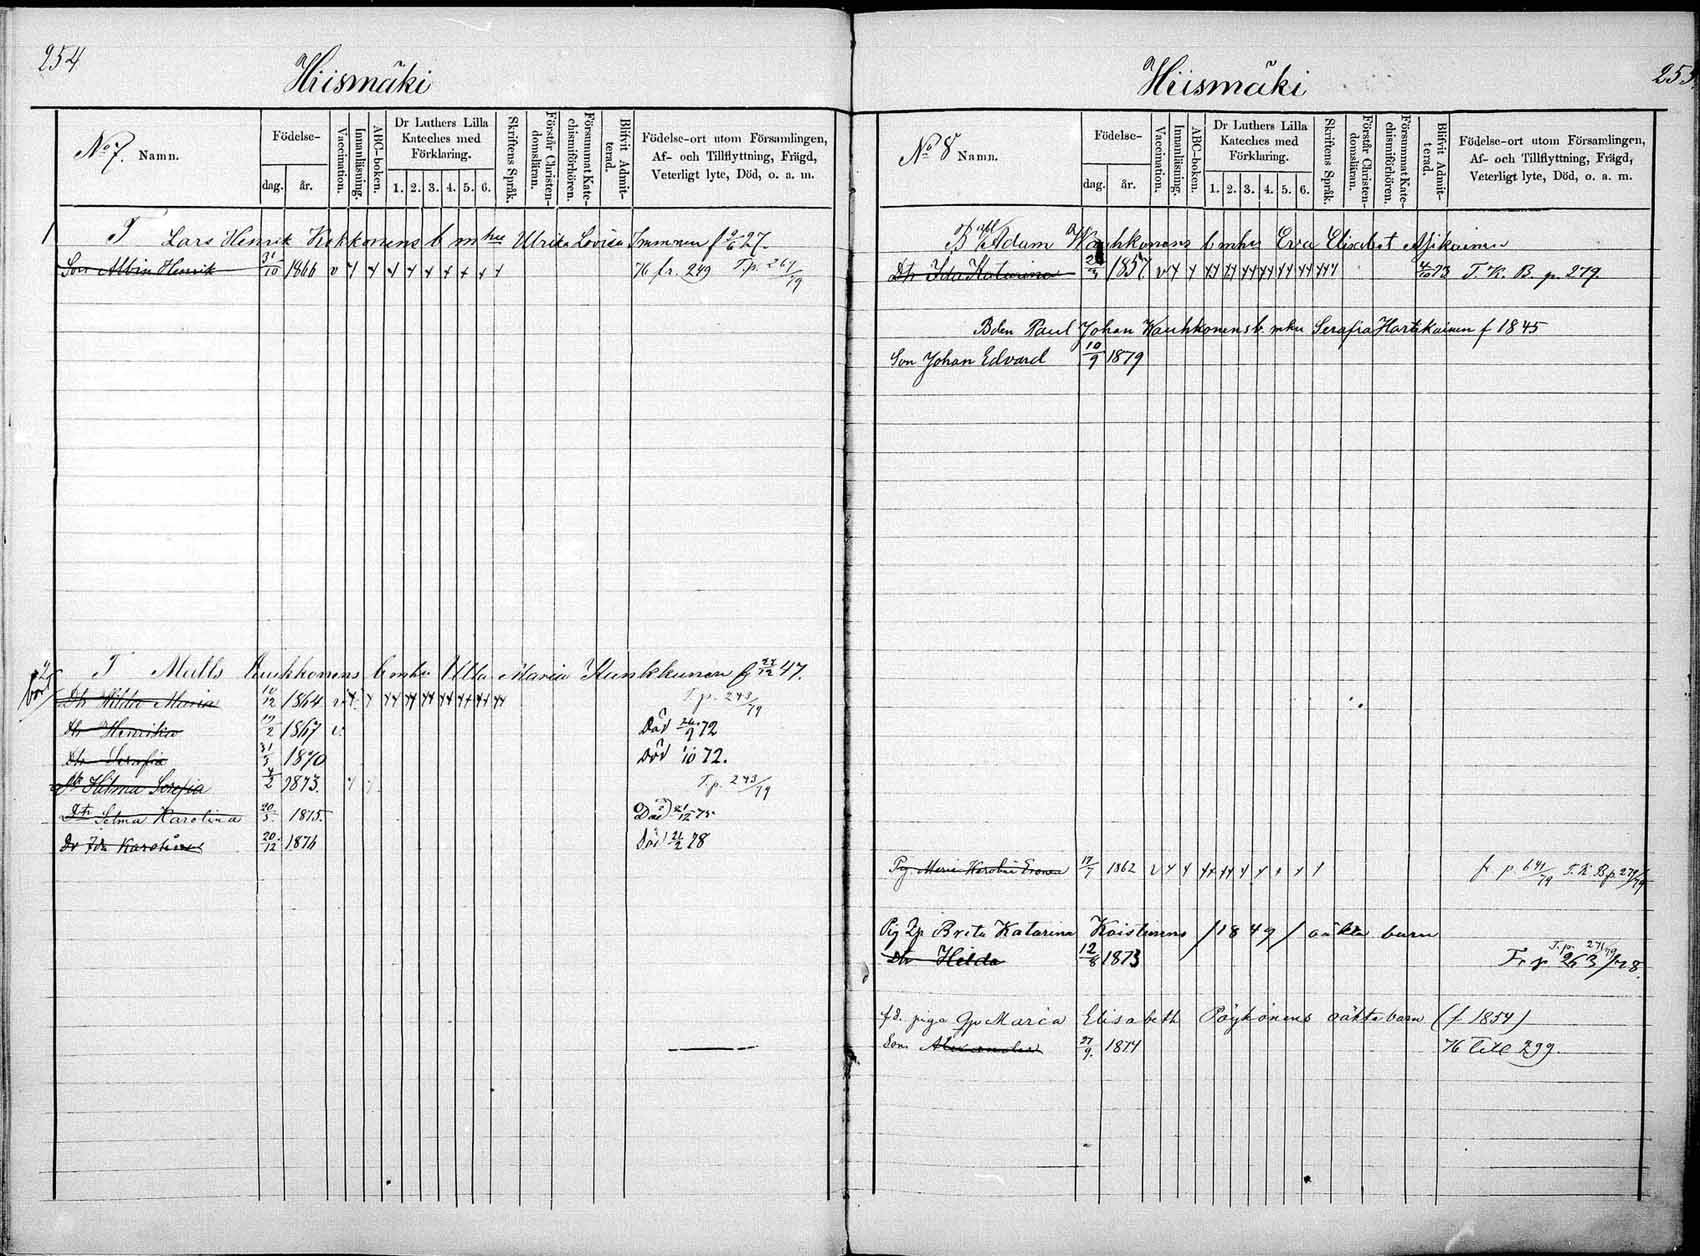 254
Hiismäki
No 7. Namn.
Födelse-
dag. år.
Vaccination.
Innanläsning.
ABC-boken.
Dr Luthers Lilla Kateches med Förklaring.
1. 2. 3. 4. 5. 6.
Skriftens Språk.
Förstår Christendomsläran.
Försummat Katechismiförhören.
Blifvit Admitterad.
Födelse-ort utom Församlingen,
Af- och Tillflyttning, Frägd,
Veterligt lyte, Död, o. a. m.
1 T Lars Henrik Kokkonens b m hu Ulrika Lovisa Immonen f 2/6 27.
Son Albin Henrik 31/10 1866 v 76 fr. 249 T.p. 267/79
2 T Matts Kaukkonens b mhu Ulla Maria Kunkkunen f 27/12 47.
Dtr Hilda Maria 10/12 1864 T.p. 243/79
Dtr Henrika 17/2 1867 v. Död 26/9 72
Dtr Serafia 31/5 1870 Död 1/10 72.
Dtr Hilma Serafia 4/2 1873. T.p. 243/79
Dtr Selma Karolina 20/5 1875. Död 21/12 75
Dr Ida Karolina 20/12 1876 Död 21/2 78
255
Hiismäki
No 8 Namn.
Födelse-
dag. år.
Vaccination.
Innanläsning.
ABC-boken.
Dr Luthers Lilla Kateches med Förklaring.
1. 2. 3. 4. 5. 6.
Skriftens Språk.
Förstår Christendomsläran.
Försummat Katechismiförhören.
Blifvit Admitterad.
Födelse-ort utom Församlingen,
Af- och Tillflyttning, Frägd,
Veterligt lyte, Död, o. a. m.
B Adam Kauhkonens b mhu Eva Elisabet Mikainen
Dtr Ida Katarina 1857 v 4/10 73 T. K. B. p. 279.
Bden Paul Johan Kauhkonens b. mhu Serafia Hartikainen f 1845
Son Johan Edvard 10/9 1879
Pig. Maria Karolin Eronen 17/7 1862 v fr p 641/79 T. K. B p 279/79
Pig 2p Brita Katarina Koistinens /1849/ oäkta barn
Dtr Hilda 12/8 1873 T.p. 271/79 Fr p 263/78.
fd. piga Qp Maria Elisabeth Pöykönens oäkta barn (f 1854)
Son Alexander 27/9. 1874 76 till 299.